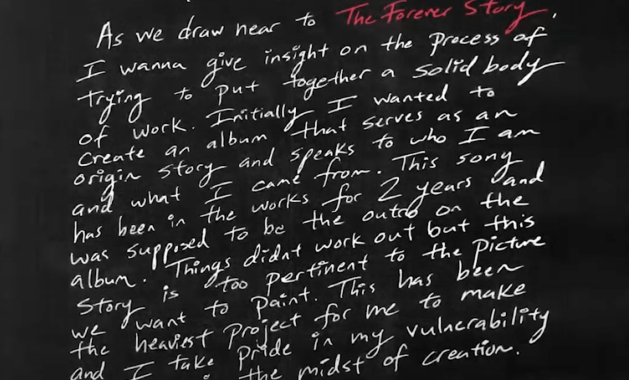 As we draw near to The Forever Story,
I wanna give insight on the process of
trying to put together a solid body
of work. Initially I wanted to
create an album that serves as an
origin story and speaks to who I am
and what I came from. This song
has been in the works for 2 years and
was supposed to be the outro on the
album. Things didnt work out but this
story is too pertinent to the picture
we want to paint. This has been
the heaviest project for me to make
and I take pride in my vulnerability
the midst of creation.